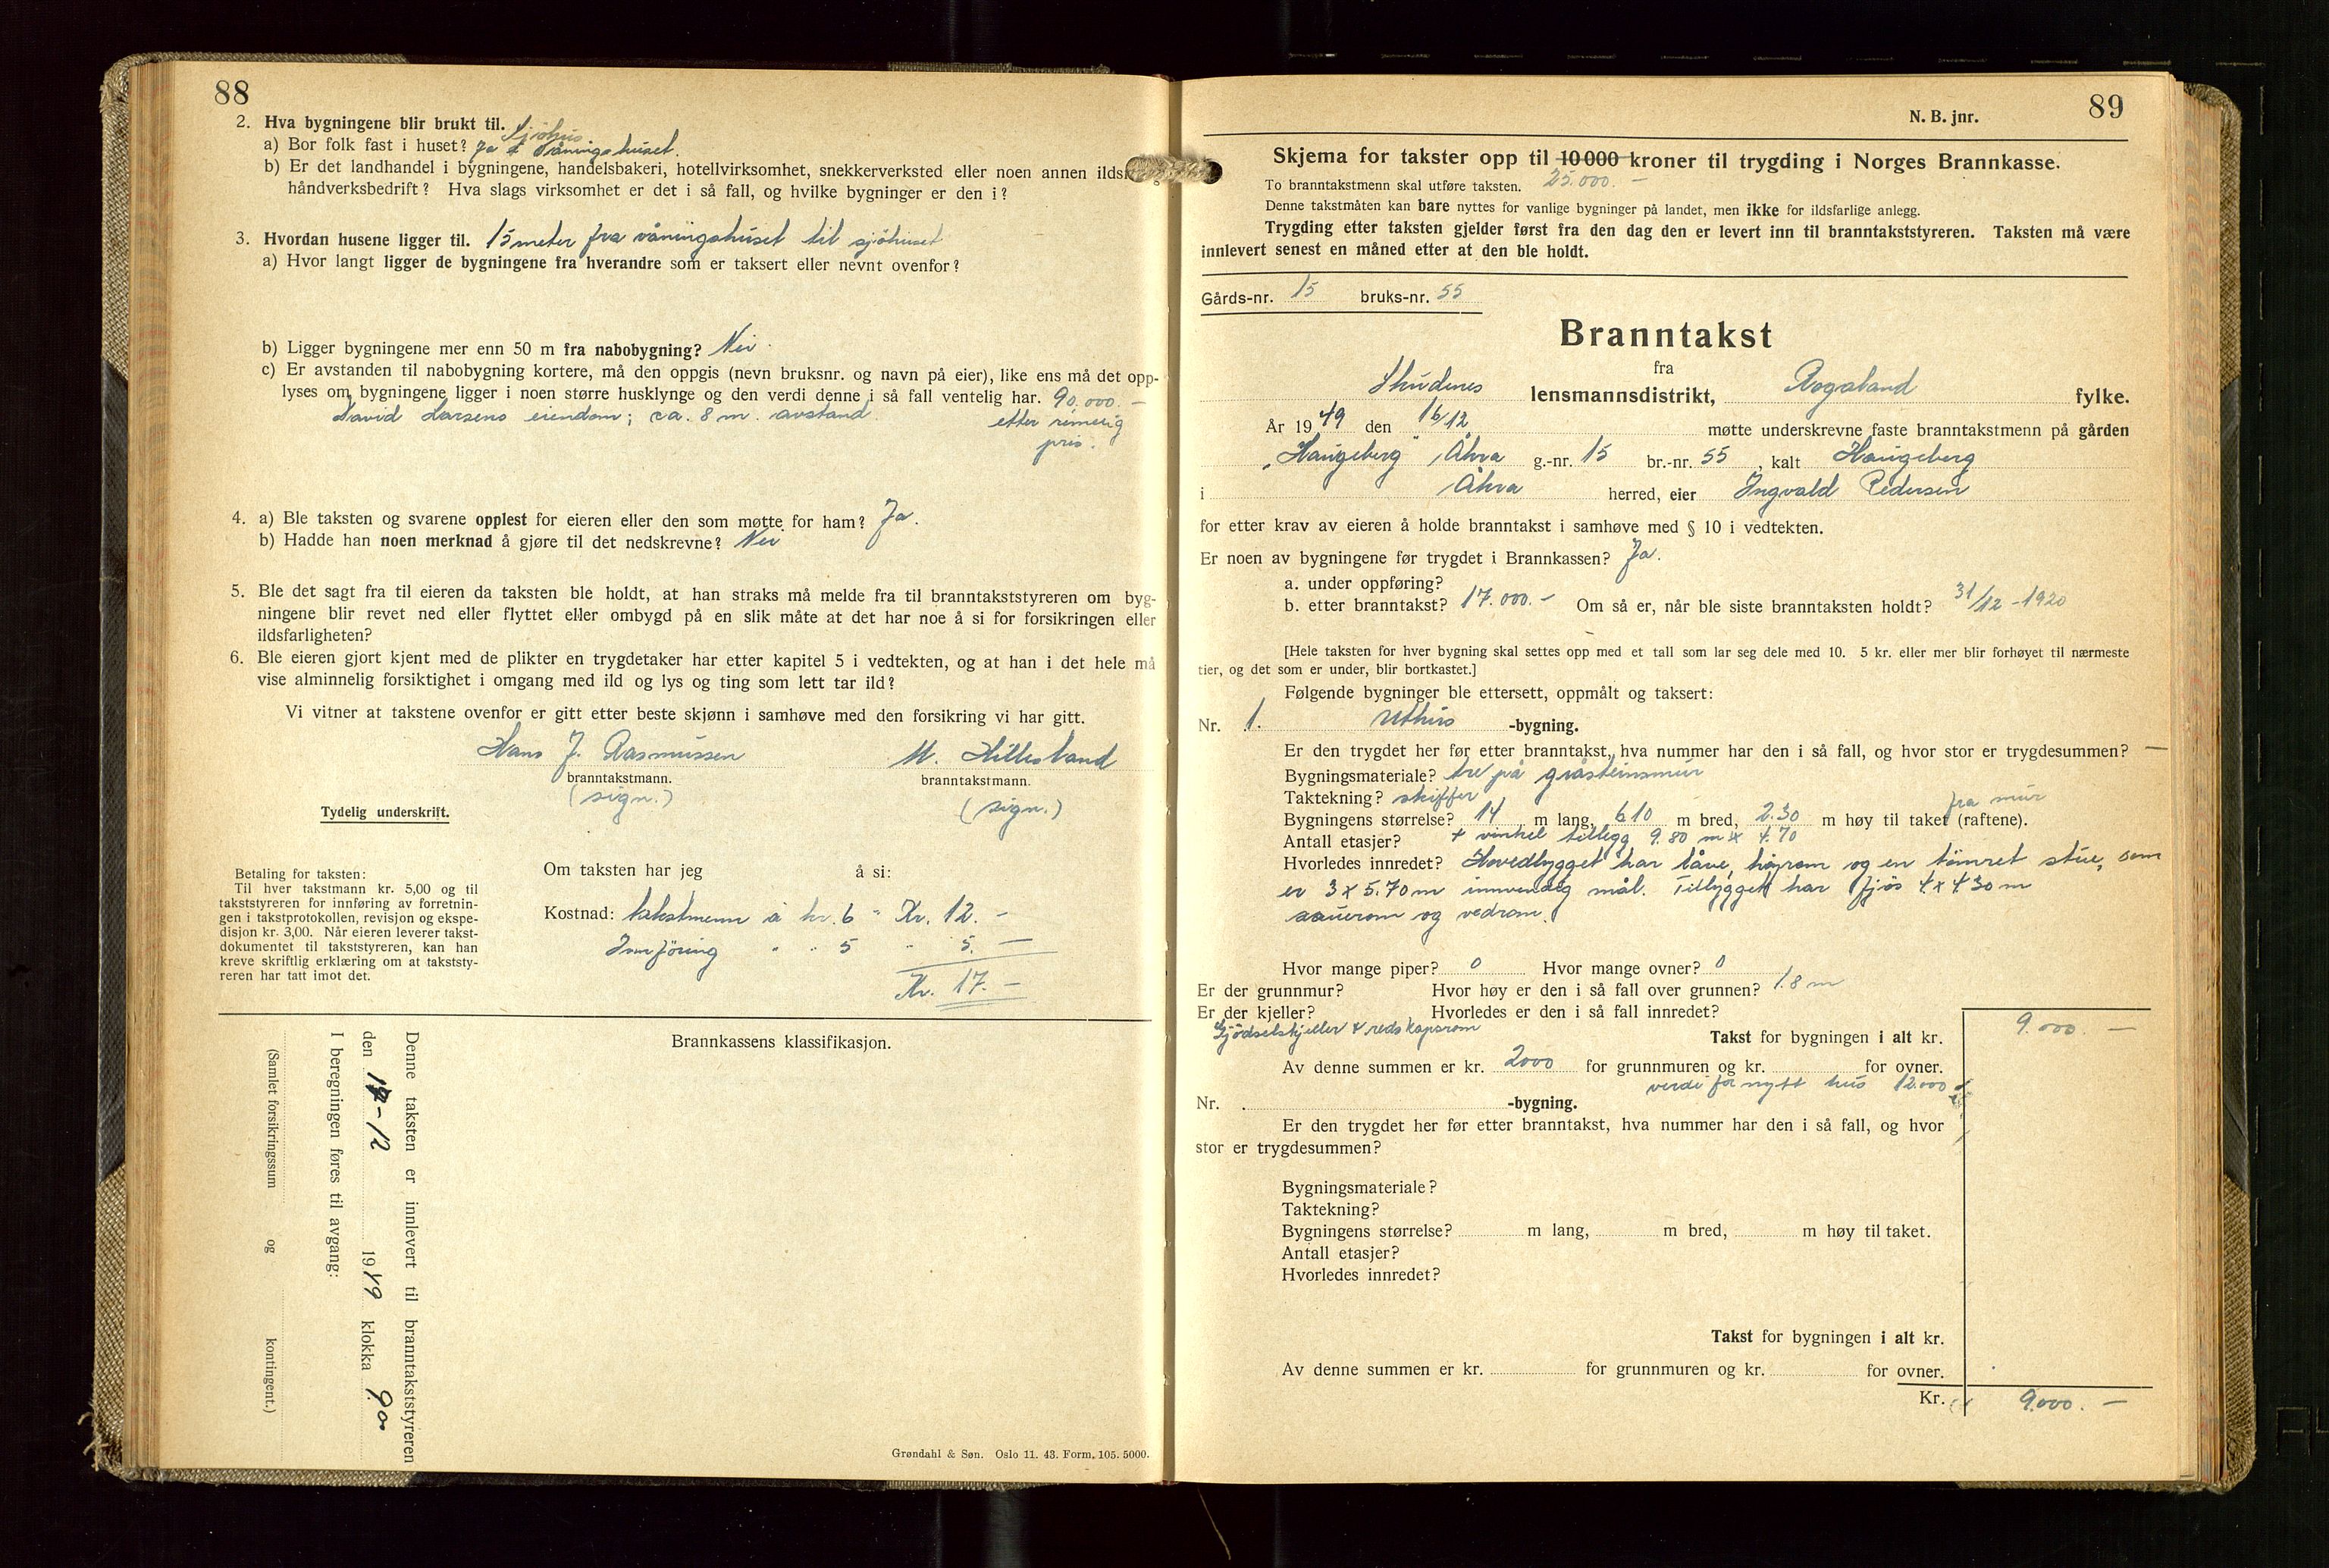 88
2. Hva bygningene blir brukt til. Sjöhus
a) Bor folk fast i huset? Ja i våningshuset.
b) Er det landhandel i bygningene, handelsbakeri, hotellvirksomhet, snekkerverksted eller noen annen ildsf
håndverksbedrift? Hva slags virksomhet er det i så fall, og hvilke bygninger er den i?
3. Hvordan husene ligger til. 15 meter fra våningshuset til sjöhuset
a) Hvor langt ligger de bygningene fra hverandre som er taksert eller nevnt ovenfor?
b) Ligger bygningene mer enn 50 m fra nabobygning? Nei
c) Er avstanden til nabobygning kortere, må den oppgis (nevn bruksnr. og navn på eier), like ens må det opp-
lyses om bygningene ligger i noen større husklynge og den verdi denne i så fall ventelig har. 90.000.-
David Larsens eiendom; ca. 8 m. avstand. etter rimelig
pris.
4. a) Ble taksten og svarene opplest for eieren eller den som møtte for ham? Ja.
b) Hadde han noen merknad å gjøre til det nedskrevne? Nei
5. Ble det sagt fra til eieren da taksten ble holdt, at han straks må melde fra til branntakststyreren om byg-
ningene blir revet ned eller flyttet eller ombygd på en slik måte at det har noe å si for forsikringen eller
ildsfarligheten?
6. Ble eieren gjort kjent med de plikter en trygdetaker har etter kapitel 5 i vedtekten, og at han i det hele må
vise alminnelig forsiktighet i omgang med ild og lys og ting som lett tar ild?
Vi vitner at takstene ovenfor er gitt etter beste skjønn i samhøve med den forsikring vi har gitt.
Hans J. Rasmussen M. Hillesland
branntakstmann. branntakstmann.
(sign.) (sign.)
Tydelig underskrift.
Betaling for taksten:
Til hver takstmann kr. 5,00 og til
takststyreren for innføring av forretnin-
gen i takstprotokollen, revisjon og ekspe-
disjon kr. 3,00. Når eieren leverer takst-
dokumentet til takststyreren, kan han
kreve skriftlig erklæring om at takststy-
reren har tatt imot det.
Om taksten har jeg å si:
Kostnad: takstmenn à kr. 6 " Kr. 12.-
Innföring " " 5 " 5.-
Kr. 17.-
Denne taksten er innlevert til branntakststyreren
den 17-12 1949 klokka 9.00
I beregningen føres til avgang:
(Samlet forsikringssum og kontingent.)
Brannkassens klassifikasjon.
Grøndahl & Søn. Oslo 11. 43. Form. 105. 5000.
N. B. jnr. 89
Skjema for takster opp til 10 000 kroner til trygding i Norges Brannkasse.
To branntakstmenn skal utføre taksten. 25.000.-
Denne takstmåten kan bare nyttes for vanlige bygninger på landet, men ikke for ildsfarlige anlegg.
Trygding etter taksten gjelder først fra den dag den er levert inn til branntakststyreren. Taksten må være
innlevert senest en måned etter at den ble holdt.
Gårds-nr. 15 bruks-nr. 55
Branntakst
fra
Skudenes lensmannsdistrikt, Rogaland fylke.
År 1949 den 16/12 møtte underskrevne faste branntakstmenn på gården
"Haugeberg" Åkra g.-nr. 15 br.-nr. 55, kalt Haugeberg
i Åkra herred, eier Ingvald Pedersen
for etter krav av eieren å holde branntakst i samhøve med § 10 i vedtekten.
Er noen av bygningene før trygdet i Brannkassen? Ja.
a. under oppføring?
b. etter branntakst? 17.000.- Om så er, når ble siste branntaksten holdt? 31/12 - 1920
[Hele taksten for hver bygning skal settes opp med et tall som lar seg dele med 10. 5 kr. eller mer blir forhøyet til nærmeste
tier, og det som er under, blir bortkastet.]
Følgende bygninger ble ettersett, oppmålt og taksert:
Nr. 1. Uthus -bygning.
Er den trygdet her før etter branntakst, hva nummer har den i så fall, og hvor stor er trygdesummen? -
Bygningsmateriale? tre på gråsteinsmur
Taktekning? skiffer fra mur
Bygningens størrelse? 14 m lang, 6.10 m bred, 2.30 m høy til taket (raftene).
Antall etasjer? + vinkel tillegg 9.80 m x 4.70
Hvorledes innredet? Hovedbygget har låve, höyrom og en tömret stue, som
er 3 x 5.70 m innvendig mål. Tilbygget har fjös 4 x 4.30 m
sauerom og vedrom.
Hvor mange piper? 0 Hvor mange ovner? 0
Er der grunnmur? Hvor høy er den i så fall over grunnen? 1.8 m
Er der kjeller? Hvorledes er den i så fall innredet?
Gjödselskjeller + redskapsrom
Takst for bygningen i alt kr. 9.000.-
Av denne summen er kr. 2000 for grunnmuren og kr. for ovner.
verdi for nytt hus 12.000
Nr. -bygning.
Er den trygdet her før etter branntakst, hva nummer har den i så fall, og hvor
stor er trygdesummen?
Bygningsmateriale?
Taktekning?
Bygningens størrelse? m lang, m bred, m høy til taket.
Antall etasjer?
Hvorledes innredet?
Takst for bygningen i alt kr.
Av denne summen er kr. for grunnmuren og kr. for ovner.
Kr. 9.000.-